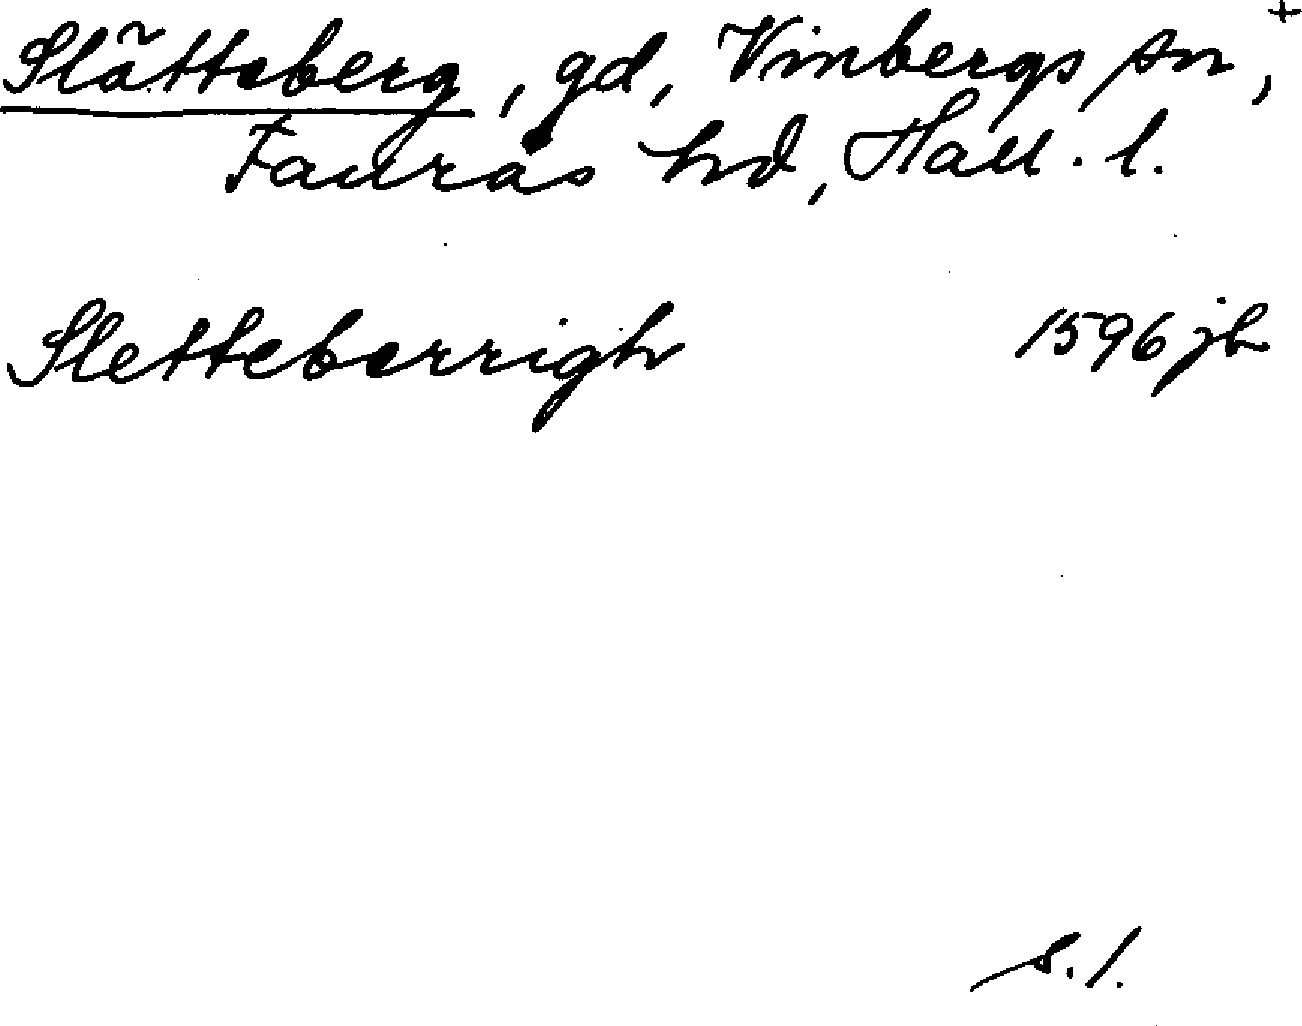 Slätteberg, gd, Vinbergs sn, +
Faurås hd, Hall. l.
Sletteberrigh 1596 jb
s. 1.